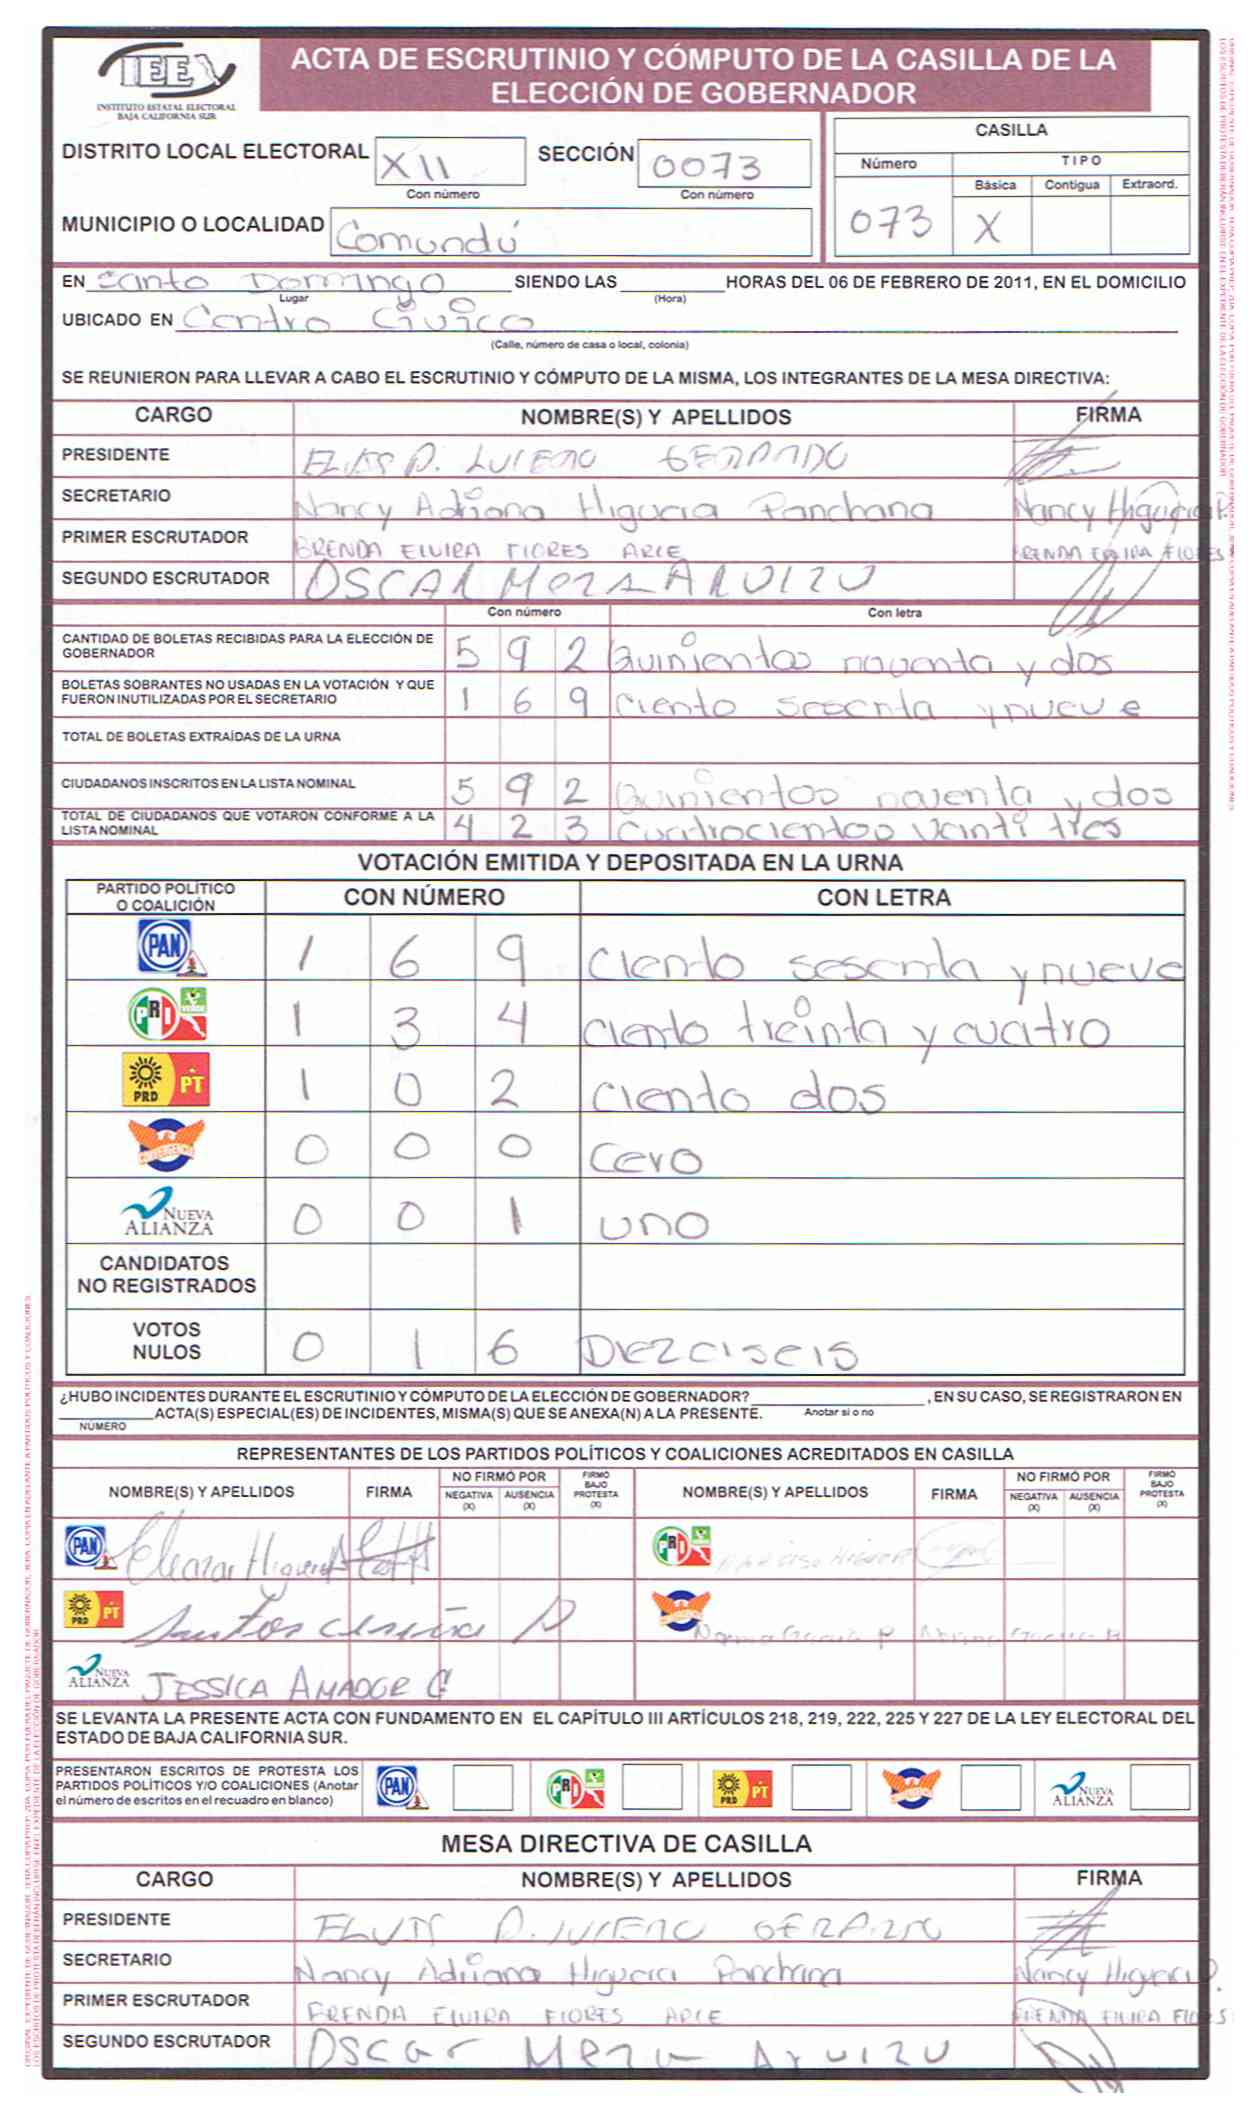 IEE
INSTITUTO ESTATAL ELECTORAL
BAJA CALIFORNIA SUR
ACTA DE ESCRUTINIO Y CÓMPUTO DE LA CASILLA DE LA
ELECCIÓN DE GOBERNADOR
DISTRITO LOCAL ELECTORAL XII SECCIÓN 0073
Con número Con número
MUNICIPIO O LOCALIDAD Comundú
CASILLA
Número TIPO
Básica Contigua Extraord.
073 X
EN Santo Domingo SIENDO LAS HORAS DEL 06 DE FEBRERO DE 2011, EN EL DOMICILIO
Lugar (Hora)
UBICADO EN Centro Civico
(Calle, número de casa o local, colonia)
SE REUNIERON PARA LLEVAR A CABO EL ESCRUTINIO Y CÓMPUTO DE LA MISMA, LOS INTEGRANTES DE LA MESA DIRECTIVA:
CARGO NOMBRE(S) Y APELLIDOS FIRMA
PRESIDENTE
SECRETARIO Nancy Adriana Higuera Panchana Nancy Higuera P.
PRIMER ESCRUTADOR BRENDA ELVIRA FLORES ARCE BRENDA ELVIRA FLORES
SEGUNDO ESCRUTADOR OSCAR Meza ARUIZU
Con número Con letra
CANTIDAD DE BOLETAS RECIBIDAS PARA LA ELECCIÓN DE
GOBERNADOR 5 9 2 Quinientos noventa y dos
BOLETAS SOBRANTES NO USADAS EN LA VOTACIÓN Y QUE
FUERON INUTILIZADAS POR EL SECRETARIO 1 6 9 ciento sesenta y nueve
TOTAL DE BOLETAS EXTRAÍDAS DE LA URNA
CIUDADANOS INSCRITOS EN LA LISTA NOMINAL 5 9 2 Quinientos noventa y dos
TOTAL DE CIUDADANOS QUE VOTARON CONFORME A LA
LISTA NOMINAL 4 2 3 cuatrocientos veinti tres
VOTACIÓN EMITIDA Y DEPOSITADA EN LA URNA
PARTIDO POLÍTICO
O COALICIÓN CON NÚMERO CON LETRA
PAN 1 6 9 ciento sesenta y nueve
PRI VERDE 1 3 4 ciento treinta y cuatro
PRD PT 1 0 2 ciento dos
CONVERGENCIA 0 0 0 cero
NUEVA ALIANZA 0 0 1 uno
CANDIDATOS
NO REGISTRADOS
VOTOS
NULOS 0 1 6 Diezciseis
¿HUBO INCIDENTES DURANTE EL ESCRUTINIO Y CÓMPUTO DE LA ELECCIÓN DE GOBERNADOR? , EN SU CASO, SE REGISTRARON EN
ACTA(S) ESPECIAL(ES) DE INCIDENTES, MISMA(S) QUE SE ANEXA(N) A LA PRESENTE. Anotar si o no
NÚMERO
REPRESENTANTES DE LOS PARTIDOS POLÍTICOS Y COALICIONES ACREDITADOS EN CASILLA
NOMBRE(S) Y APELLIDOS FIRMA NO FIRMÓ POR NEGATIVA (X) AUSENCIA (X) FIRMÓ BAJO PROTESTA (X) NOMBRE(S) Y APELLIDOS FIRMA NO FIRMÓ POR NEGATIVA (X) AUSENCIA (X) FIRMÓ BAJO PROTESTA (X)
PAN Eleazar Higuera PRI
PRD PT Norma Garcia
NUEVA ALIANZA JESSICA AMADOR C
SE LEVANTA LA PRESENTE ACTA CON FUNDAMENTO EN EL CAPÍTULO III ARTÍCULOS 218, 219, 222, 225 Y 227 DE LA LEY ELECTORAL DEL
ESTADO DE BAJA CALIFORNIA SUR.
PRESENTARON ESCRITOS DE PROTESTA LOS
PARTIDOS POLÍTICOS Y/O COALICIONES (Anotar
el número de escritos en el recuadro en blanco)
PAN PRI PRD PT NUEVA ALIANZA
MESA DIRECTIVA DE CASILLA
CARGO NOMBRE(S) Y APELLIDOS FIRMA
PRESIDENTE
SECRETARIO Nancy Adriana Higuera Panchana Nancy Higuera P.
PRIMER ESCRUTADOR BRENDA ELVIRA FLORES ARCE BRENDA ELVIRA FLORES
SEGUNDO ESCRUTADOR Oscar Meza Aruizu